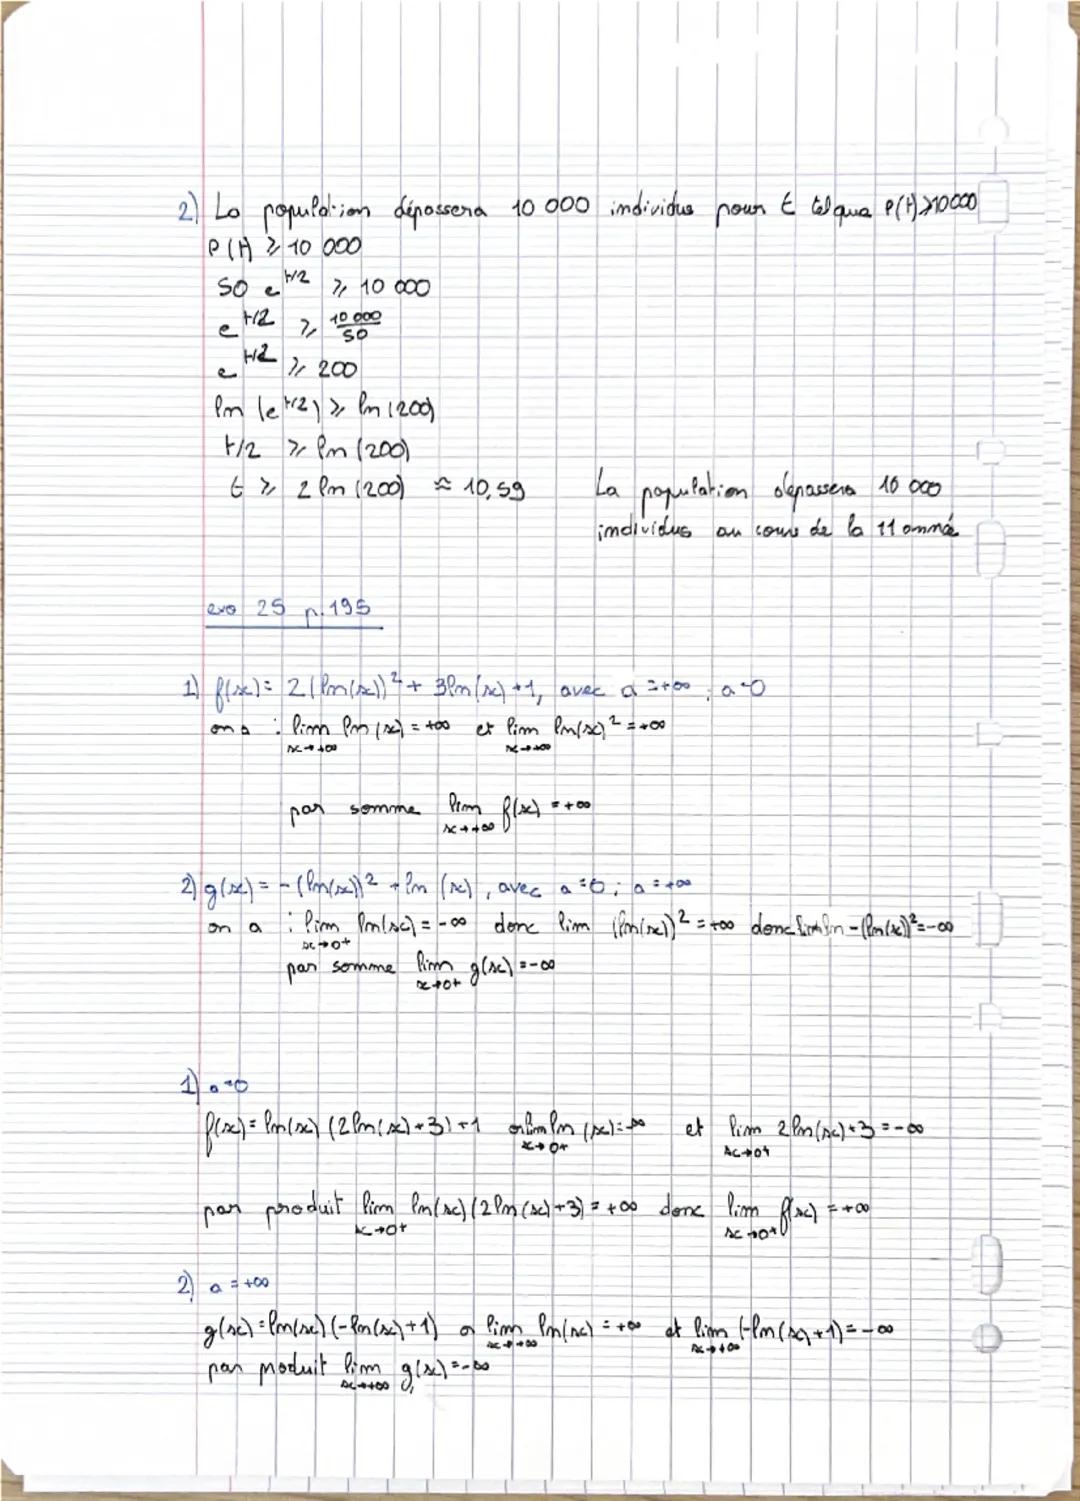 2) La population dépassera 10 000 individus pour t tel que P(t)≥10000
P(t) ≥ 10 000
50 e^t/2 ≥ 10 000
e^t/2 ≥ 10 000/50
e^t/2 ≥ 200
ln(e^t/2) ≥ ln(200)
t/2 ≥ ln(200)
t ≥ 2 ln(200) ≈ 10,59 La population dépassera 10 000
individus au cours de la 11 année
exo 25 p.195
1) f(x) = 2(ln(x))² + 3ln(x)+1, avec a=+∞ ; a=0
on a : lim ln(x) = +∞ et lim ln(x)² = +∞
x→+∞ x→+∞
par somme lim f(x) = +∞
x→+∞
2) g(x) = -(ln(x))² + ln(x), avec a=0; a=+∞
on a : lim ln(x) = -∞ donc lim (ln(x))² = +∞ donc lim -(ln(x))²=-∞
x→0+
par somme lim g(x) = -∞
x→0+
1) a=0
f(x) = ln(x) (2ln(x)+3)+1 or lim ln(x) = -∞ et lim 2ln(x)+3 = -∞
x→0+ x→0+
par produit lim ln(x)(2ln(x)+3) = +∞ donc lim f(x) = +∞
x→0+ x→0+
2) a = +∞
g(x) = ln(x)(-ln(x)+1) or lim ln(x) = +∞ et lim (-ln(x)+1) = -∞
x→+∞ x→+∞
par produit lim g(x) = -∞
x→+∞